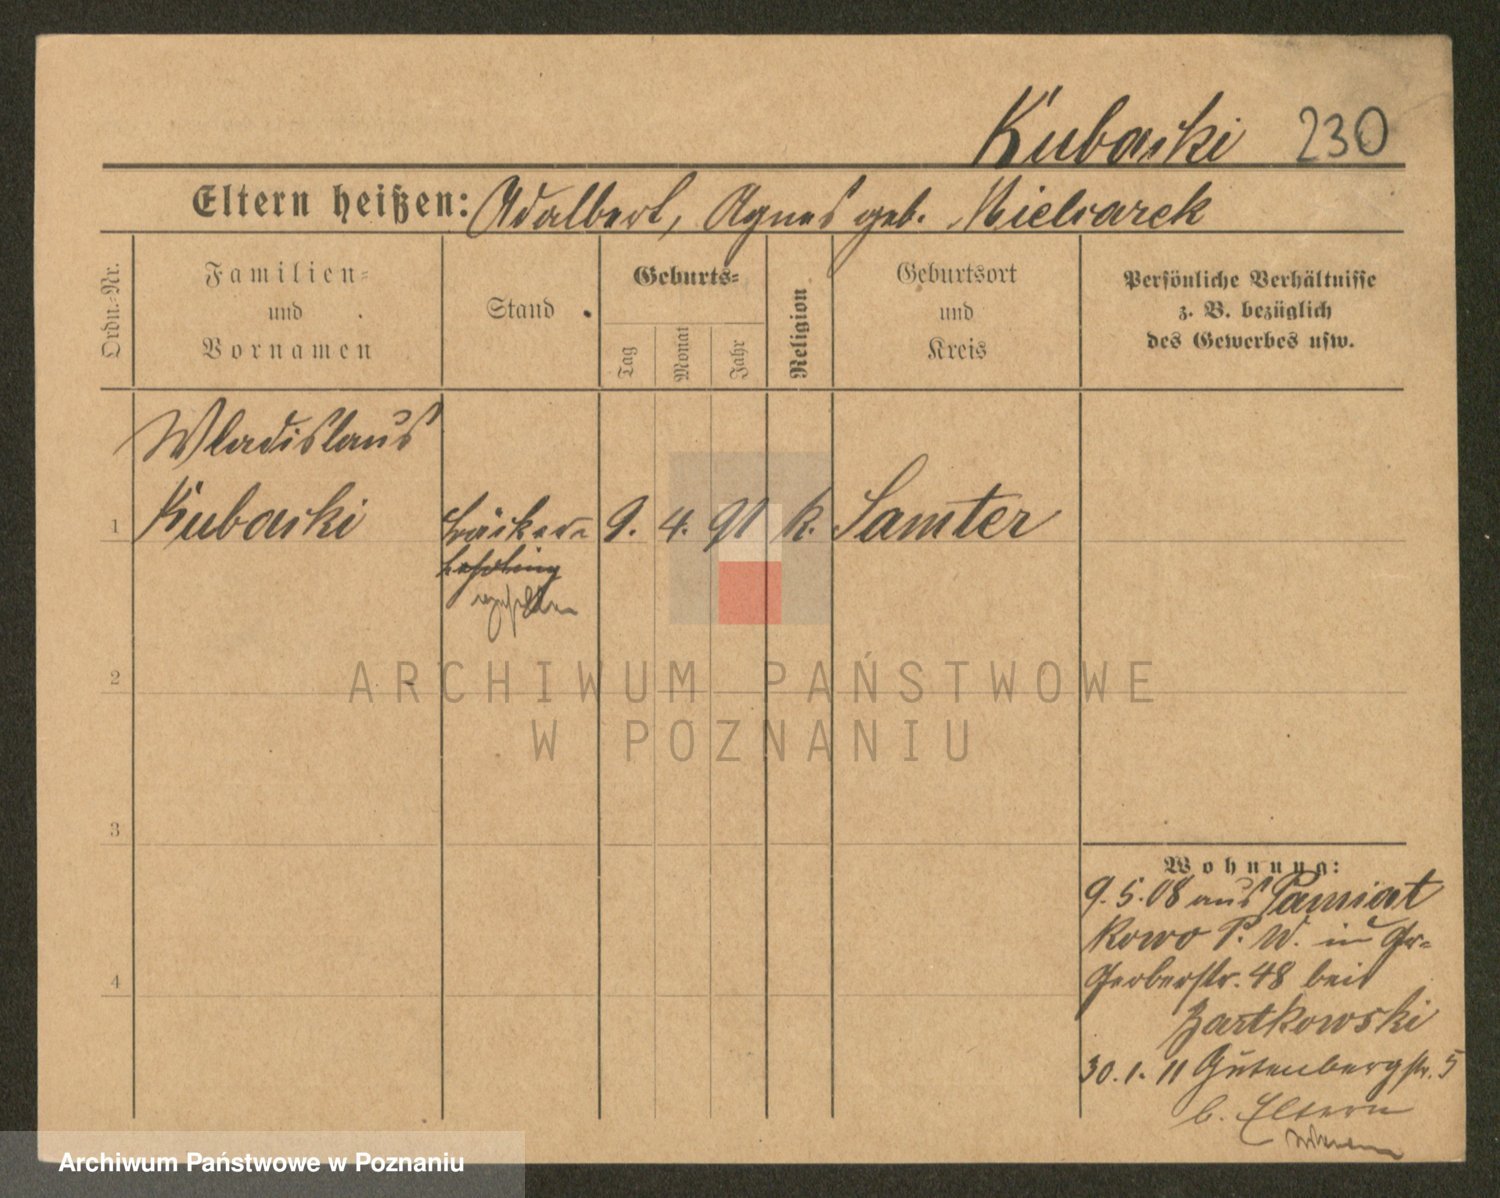 Kubacki 230
Eltern heißen: Adalbert, Agnes geb. Mielcarek
Ordn.-Nr.
Familien-
und
Vornamen
Stand
Geburts-
Tag
Monat
Jahr
Religion
Geburtsort
und
Kreis
Persönliche Verhältnisse
z. B. bezüglich
des Gewerbes usw.
Wladislaus
1 Kubacki Bäcker- 9. 4. 91 k. Samter
lehrling
2
3
4
ARCHIWUM PAŃSTWOWE
W POZNANIU
Wohnung:
9.5.08 aus Pamiat
kowo P. W. in Gr-
Gerberstr. 48 bei
Bartkowski
30.1.11 Gutenbergstr. 5
b. Eltern
Archiwum Państwowe w Poznaniu